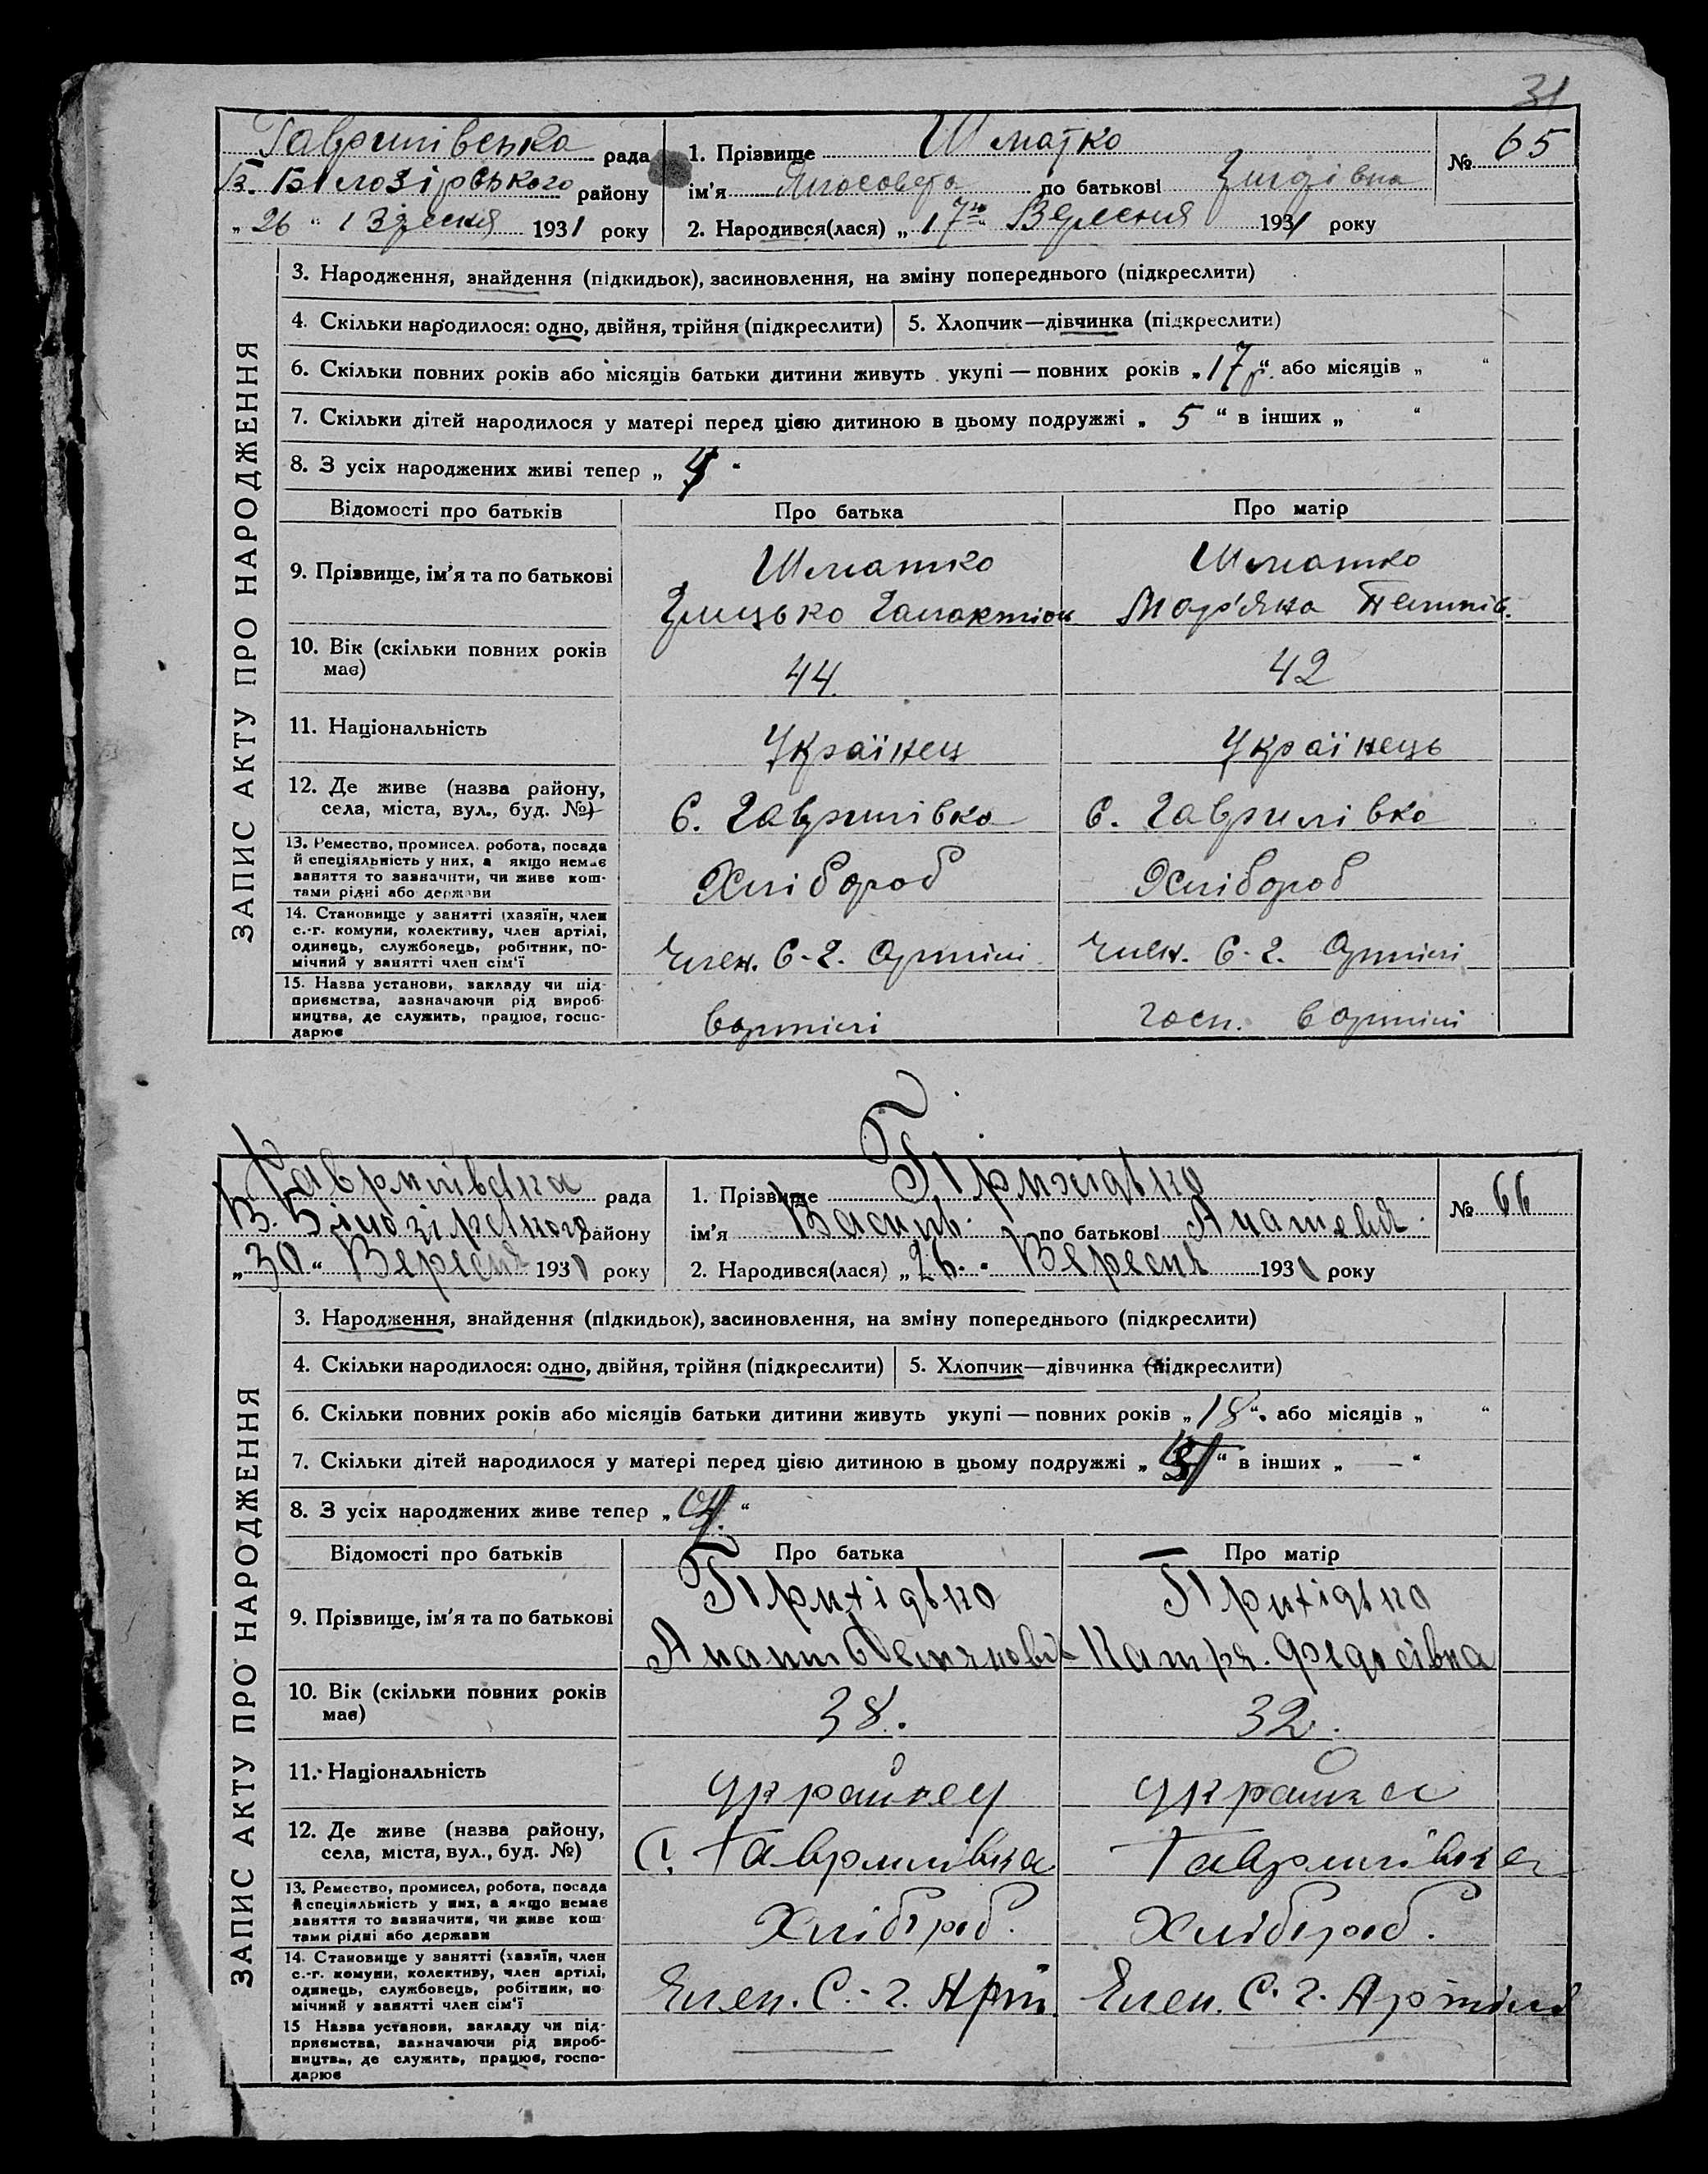 31
Гаврилівська рада
В. Білозірського району
„26“ Вересня 1931 року
1. Прізвище Шматко
ім’я по батькові
2. Народився(лася) „17го“ Вересня 1931 року
№ 65
ЗАПИС АКТУ ПРО НАРОДЖЕННЯ
3. Народження, знайдення (підкидьок), засиновлення, на зміну попереднього (підкреслити)
4. Скільки народилося: одно, двійня, трійня (підкреслити) 5. Хлопчик—дівчинка (підкреслити)
6. Скільки повних років або місяців батьки дитини живуть укупі — повних років „17р“. або місяців „ “
7. Скільки дітей народилося у матері перед цією дитиною в цьому подружжі „ 5 “ в інших „ “
8. З усіх народжених живі тепер „ 4 “
Відомості про батьків Про батька Про матір
9. Прізвище, ім’я та по батькові
Шматко Шматко
Грицько Галактіон Мар'яна Пилипів.
10. Вік (скільки повних років має) 44 42
11. Національність Українец Українець
12. Де живе (назва району, села, міста, вул., буд. №) С. Гаврилівка С. Гаврилівка
13. Ремество, промисел, робота, посада
й спеціяльність у них, а якщо немає
заняття то зазначити, чи живе кош-
тами рідні або держави
Хлібороб Хлібороб
14. Становище у занятті (хазяїн, член
с.-г. комуни, колективу, член артілі,
одинець, службовець, робітник, по-
мічний у занятті член сім’ї
Член. С-г. Артілі Член. С-г. Артілі
15. Назва установи, закладу чи під-
приємства, зазначаючи рід вироб-
ництва, де служить, працює, госпо-
дарює
вартілі госп. вартілі
Гаврилівська рада
В. Білозірського району
„30“ Вересня 1931 року
1. Прізвище Прихідько
ім’я Василь по батькові
2. Народився(лася) „26.“ Вересня 1931 року
№ 66
ЗАПИС АКТУ ПРО НАРОДЖЕННЯ
3. Народження, знайдення (підкидьок), засиновлення, на зміну попереднього (підкреслити)
4. Скільки народилося: одно, двійня, трійня (підкреслити) 5. Хлопчик—дівчинка (підкреслити)
6. Скільки повних років або місяців батьки дитини живуть укупі — повних років „18“. або місяців „ “
7. Скільки дітей народилося у матері перед цією дитиною в цьому подружжі „ “ в інших „ — “
8. З усіх народжених живе тепер „ 4. “
Відомості про батьків Про батька Про матір
9. Прізвище, ім’я та по батькові
Прихідько Прихідько
Катря. Федосівна
10. Вік (скільки повних років має) 38. 32.
11. Національність Українец Українка
12. Де живе (назва району, села, міста, вул., буд. №) С. Гаврилівка Гаврилівка
13. Ремество, промисел, робота, посада
й спеціяльність у них, а якщо немає
заняття то зазначити, чи живе кош-
тами рідні або держави
Хлібороб. Хлібороб.
14. Становище у занятті (хазяїн, член
с.-г. комуни, колективу, член артілі,
одинець, службовець, робітник, по-
мічний у занятті член сім’ї
Член. С.-г. Арт. Член. С. г. Артілі
15 Назва установи, закладу чи під-
приємства, зазначаючи рід вироб-
ництва, де служить, працює, госпо-
дарює